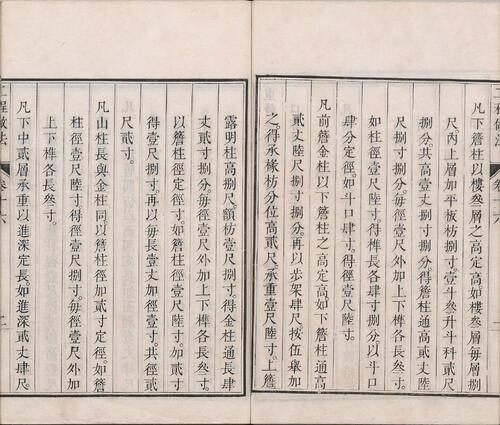 工程做法
卷十六
二
凡下簷柱以樓叁層定高如樓叁層每層捌
尺內上層加平板枋捌寸壹斗叁升斗科貳尺
捌分共高壹丈捌寸捌分得簷柱通高貳丈陸
尺捌寸捌分每徑壹尺外加上下榫各長叁寸
如柱徑壹尺陸寸得榫長各肆寸捌分以斗口
肆分定徑如斗口肆寸得徑壹尺陸寸
凡前簷金柱以下簷柱之高定高如下簷柱通高
貳丈陸尺捌寸捌分再以步架肆尺按伍舉加
之得承椽枋分位高貳尺承重壹尺陸寸上簷
露明柱高捌尺額枋壹尺捌寸得金柱通長肆
丈貳寸捌分每徑壹尺外加上下榫各長叁寸
以簷柱徑定徑寸如簷柱徑壹尺陸寸加貳寸
得壹尺捌寸再以每長壹丈加徑壹寸共徑貳
尺貳寸
凡山柱長與金柱同以簷柱徑加貳寸定徑如簷
柱徑壹尺陸寸得徑壹尺捌寸每徑壹尺外加
上下榫各長叁寸
凡下中貳層承重以進深定長如進深貳丈肆尺
工程做法
卷十六
二